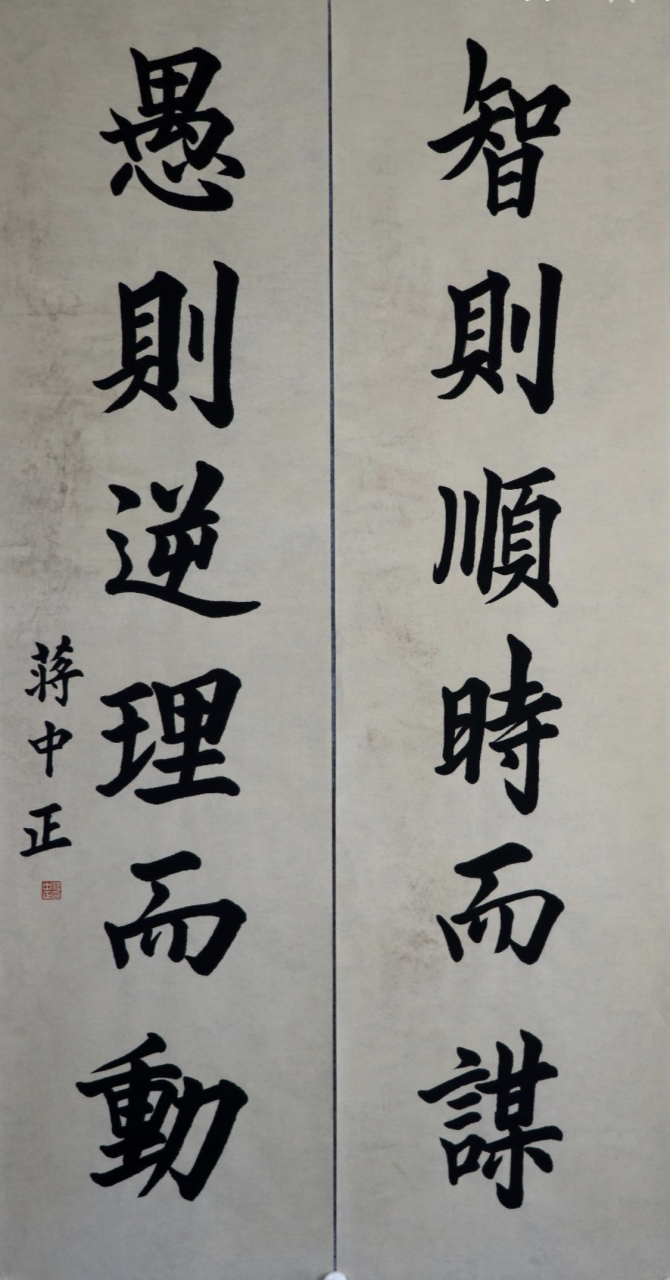 智則順時而謀
愚則逆理而動
蔣中正